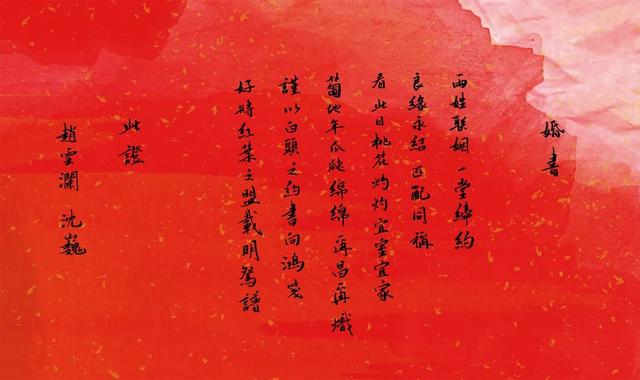 婚書
兩姓联姻 一堂締约
良緣永結 匹配同稱
看此日桃花灼灼宜室宜家
蔔他年瓜瓞綿綿再昌再熾
謹以白頭之约書向鴻箋
好將红葉之盟載明鴛譜
此證
趙雲瀾 沈巍